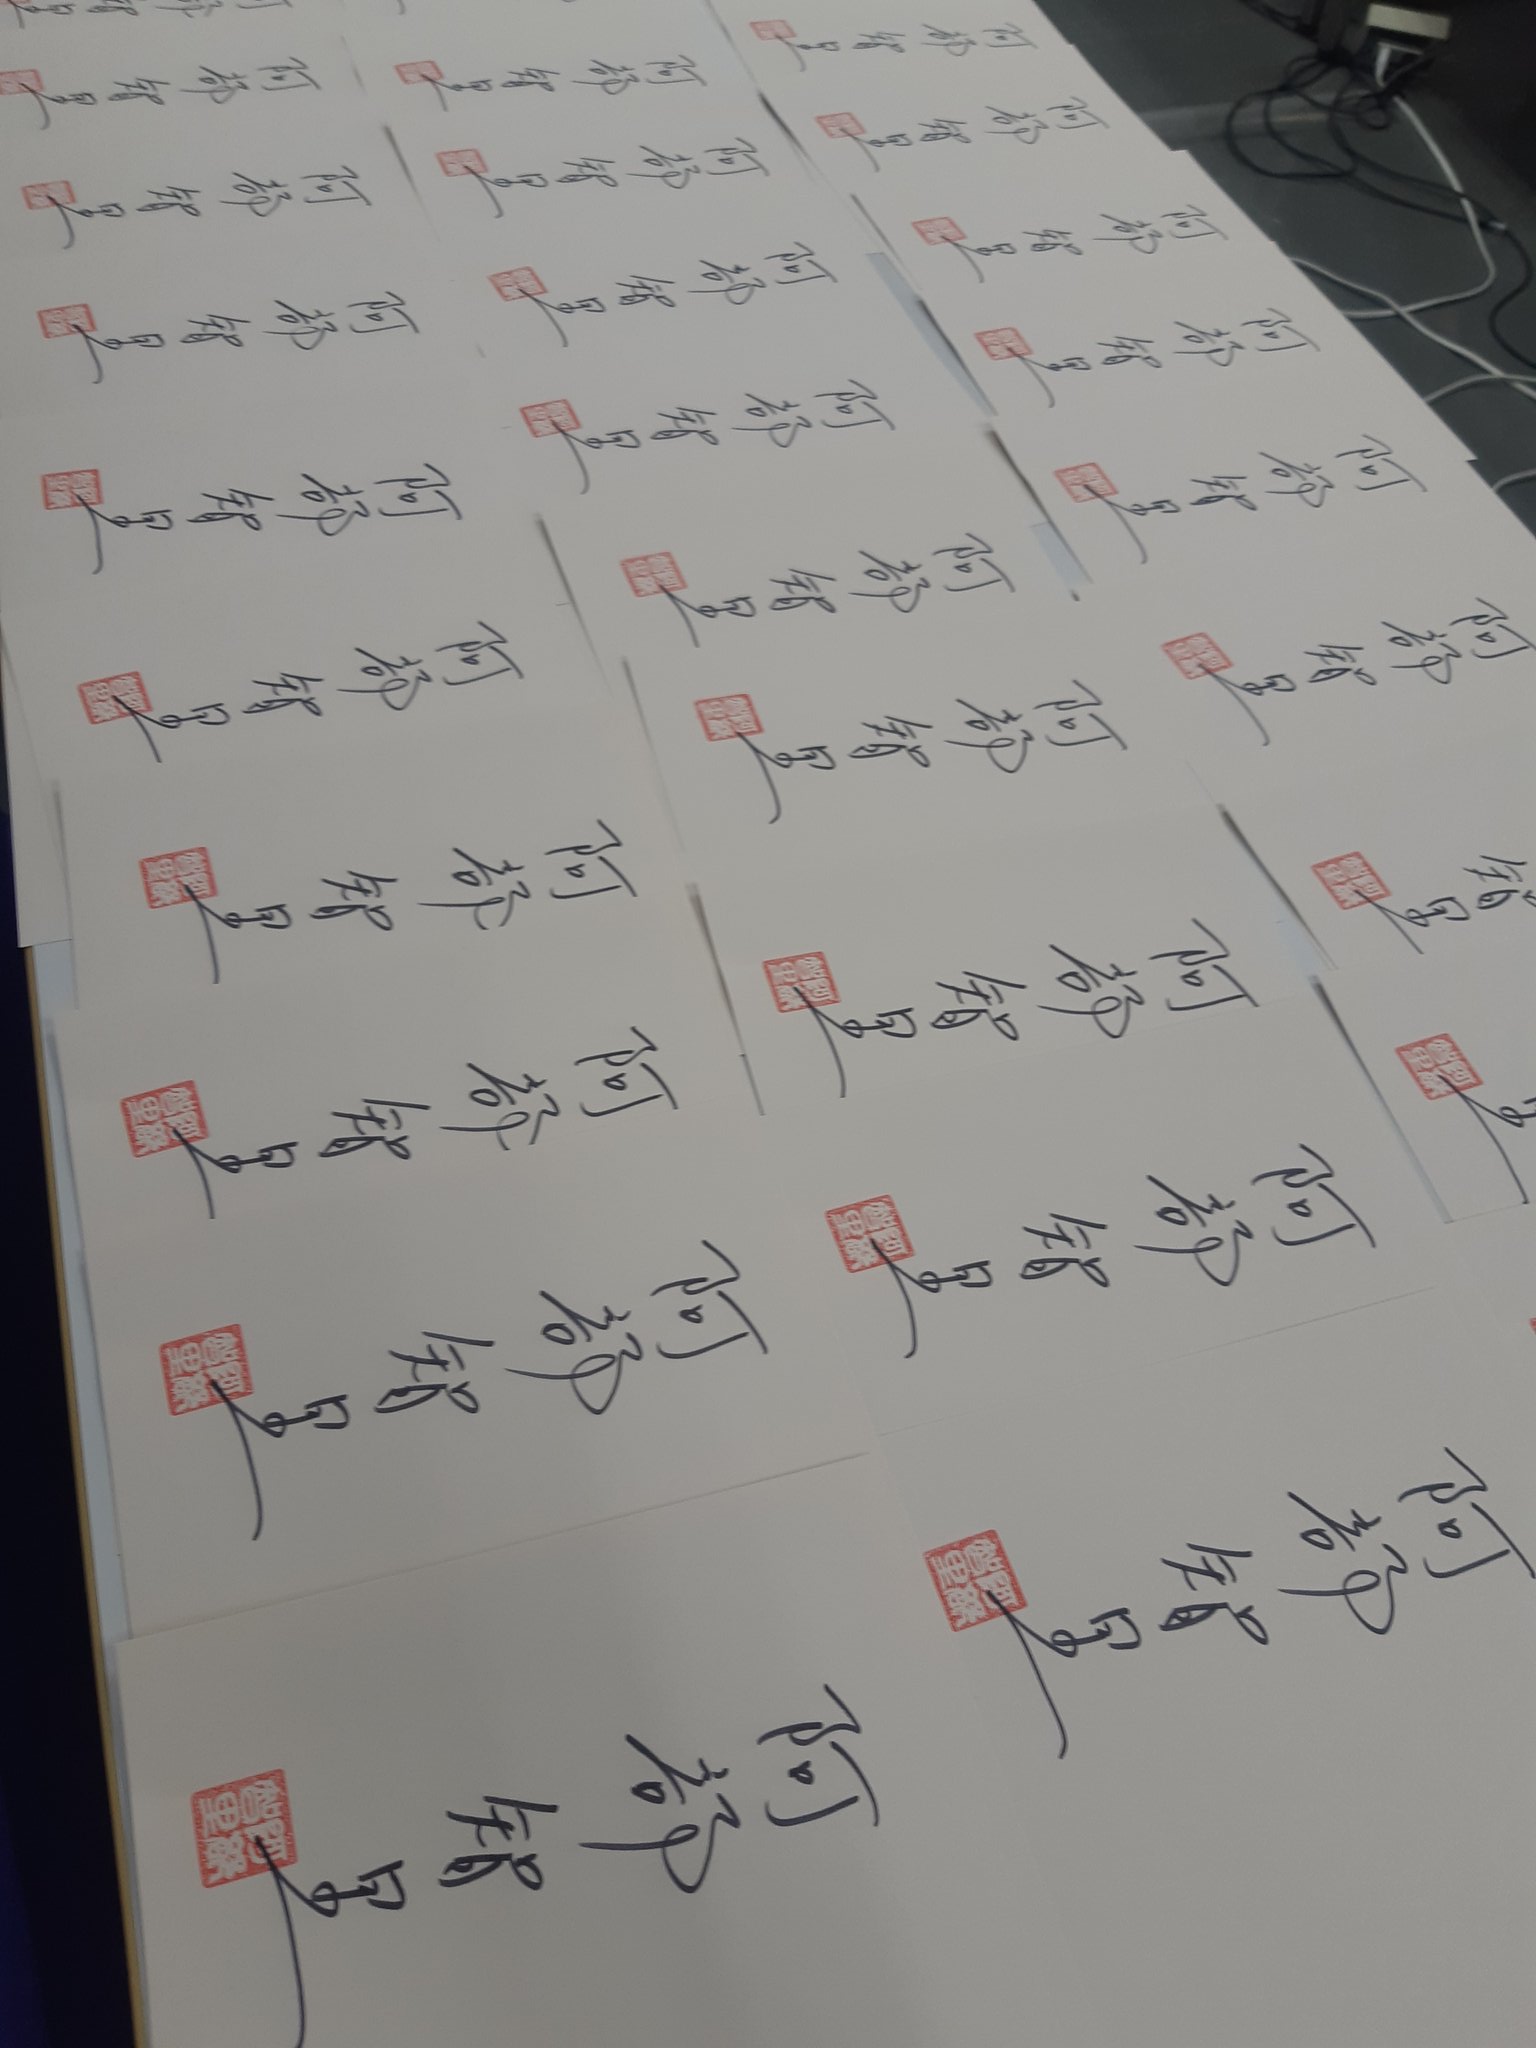 阿部智里
阿部智里
阿部智里
阿部智里
阿部智里
阿部智里
阿部智里
阿部智里
阿部智里
阿部智里
阿部智里
阿部智里
阿部智里
阿部智里
阿部智里
阿部智里
阿部智里
阿部智里
阿部智里
阿部智里
阿部智里
阿部智里
阿部智里
阿部智里
智里